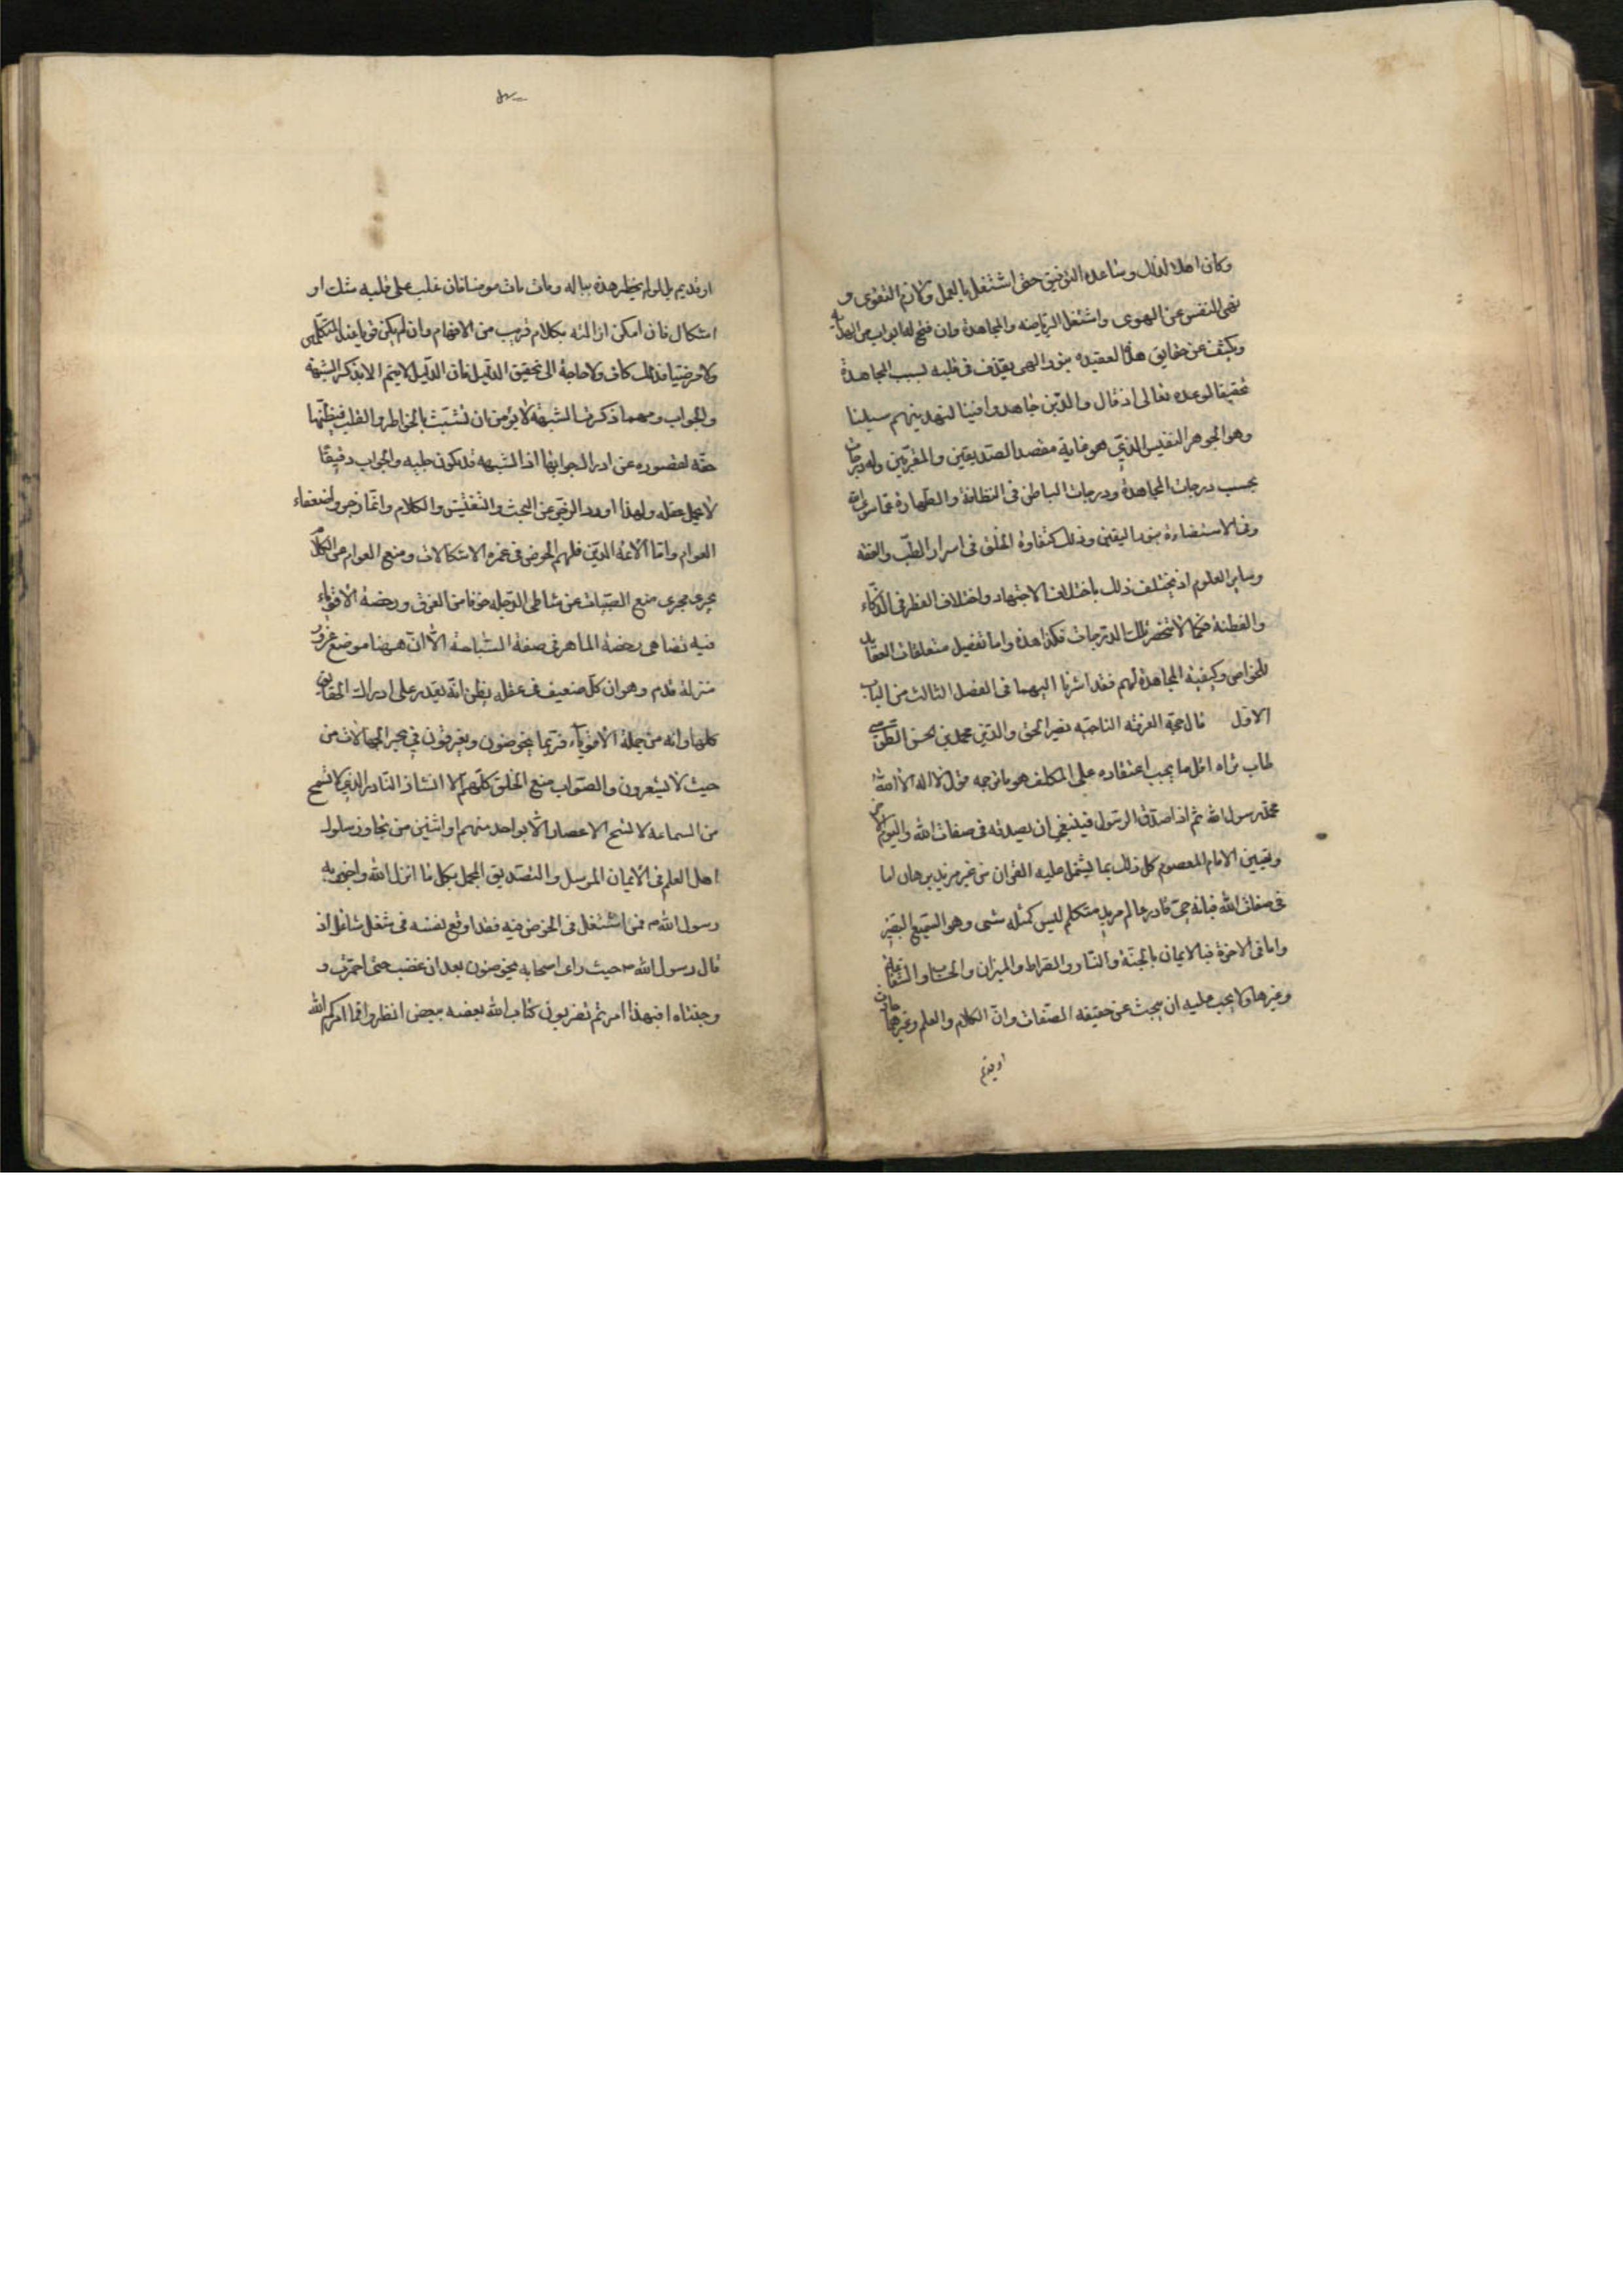 وكان اهلا لذلك وساعده التوفيق حتى اشتغل بالعمل ولازم التقوى و
نهى النفس عن الهوى واشتغل الرياضه والمجاهدة وان فتح له ابواب من الهداية
ويكشف عن حقايق هذه العقيده بنور الهى يقذف فى قلبه بسبب المجاهدة
تحقيقا لوعده تعالى اذ قال والذين جاهدوا فينا لنهدينهم سبلنا
وهو الجوهر النفيس الذي هو غاية مقصد الصديقين والمقربين وله درجات
بحسب درجات المجاهدة ودرجات الباطن فى النظافة والطهارة عما سوى الله
وفى الاستضاءة بنور اليقين وذلك كتفاوة الخلق فى اسرار الطب والفقه
وساير العلوم اذ يختلف ذلك باختلاف الاجتهاد واختلاف الفطر فى الذكاء
والفطنة فكما لا تنحصر تلك الدرجات فكذا هذه واما تفصيل متعلقات العقايد
للخواص وكيفية المجاهدة لهم فقد اشرنا اليهما فى الفصل الثالث من الباب
الاول قال حجة الفرقه الناجيه نصير الحق والدين محمد بن الحسن الطوسى
طاب ثراه اقل ما يجب اعتقاده على المكلف هو ما ترجمه قول لا اله الا الله
محمد رسول الله ثم اذا صدق الرسول فينبغى ان يصدقه فى صفات الله واليوم الاخر
وتعيين الامام المعصوم كل ذلك بما يشتمل عليه القرآن من غير مزيد برهان اما
فى صفات الله فبانه حى قادر عالم مريد متكلم ليس كمثله شى وهو السميع البصير
واما فى الاخرة فبالايمان بالجنة والنار والصراط والميزان والحساب والشفاعة
وغيرها ولا يجب عليه ان يبحث عن حقيقه الصفات وان الكلام والعلم وغيرهما حادث
او قديم
او قديم بل لو لم يخطر هذه بباله ومات مات مومنا فان غلب على قلبه شك او
اشكال فان امكن ازالته بكلام قريب من الافهام وان لم يكن قويا عند المتكلمين
ولا مرضيا فذلك كاف ولا حاجة الى تحقيق الدليل فان الدليل لا يتم الا بذكر الشبهة
والجواب ومهما ذكرت الشبهة لا يؤمن ان تشبث بالخاطر والقلب فيظنها
حقه لقصوره عن ادراك جوابها اذ الشبهه قد يكون جليه والجواب دقيقا
لا يحمل عقله ولهذا اورد الزجر عن البحث والتفتيش والكلام وانما زجر ولضعفاء
العوام واما ائمة الدين فلهم الخوض فى غمره الاشكالات ومنع العوام عن الكلام
يجرى مجرى منع الصبيات عن شاطى الدجله خوفا من الغرق ورخصة الاقوياء
فيه تضاهى رخصة الماهر فى صفة السباحة الا ان ههنا موضع غرور
منزلة قدم وهو ان كل ضعيف فى عقله يظن انه يقدر على ادراك الحقايق
كلها وانه من جملة الاقوياء فربما يخوضون ويغرقون في بحر الجهالات من
حيث لا يشعرون والصواب منع الخلق كلهم الا الشاذ النادر الذي لا تسمح
من السماعه لا تسح الاعصار الا بواحد منهم او اثنين من تجاوز سلوك
اهل العلم فى الايمان المرسل والتصديق المجمل بكل ما انزل الله واخبر به
رسول الله ص فمن اشتغل فى الخوض فيه فقد اوقع نفسه فى شغل شاغل اذ
قال رسول الله ص حيث راى اصحابه يخوضون بعد ان غضب حتى احمرت و
وجنتاه افبهذا امرتم تضربون كتاب الله بعضه ببعض انظروا فما امركم الله